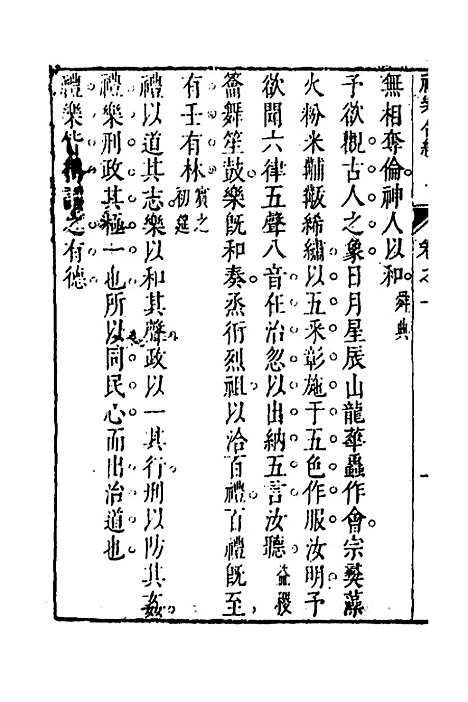 無相奪倫神人以和舜典
予欲觀古人之象日月星辰山龍華蟲作會宗彝藻
火粉米黼黻絺繡以五采彰施于五色作服汝明予
欲聞六律五聲八音在治忽以出納五言汝聽益稷
籥舞笙鼓樂旣和奏烝衎烈祖以洽百禮百禮旣至
有壬有林賓之初筵
禮以道其志樂以和其聲政以一其行刑以防其姦
禮樂刑政其極一也所以同民心而出治道也
禮樂皆得謂之有德